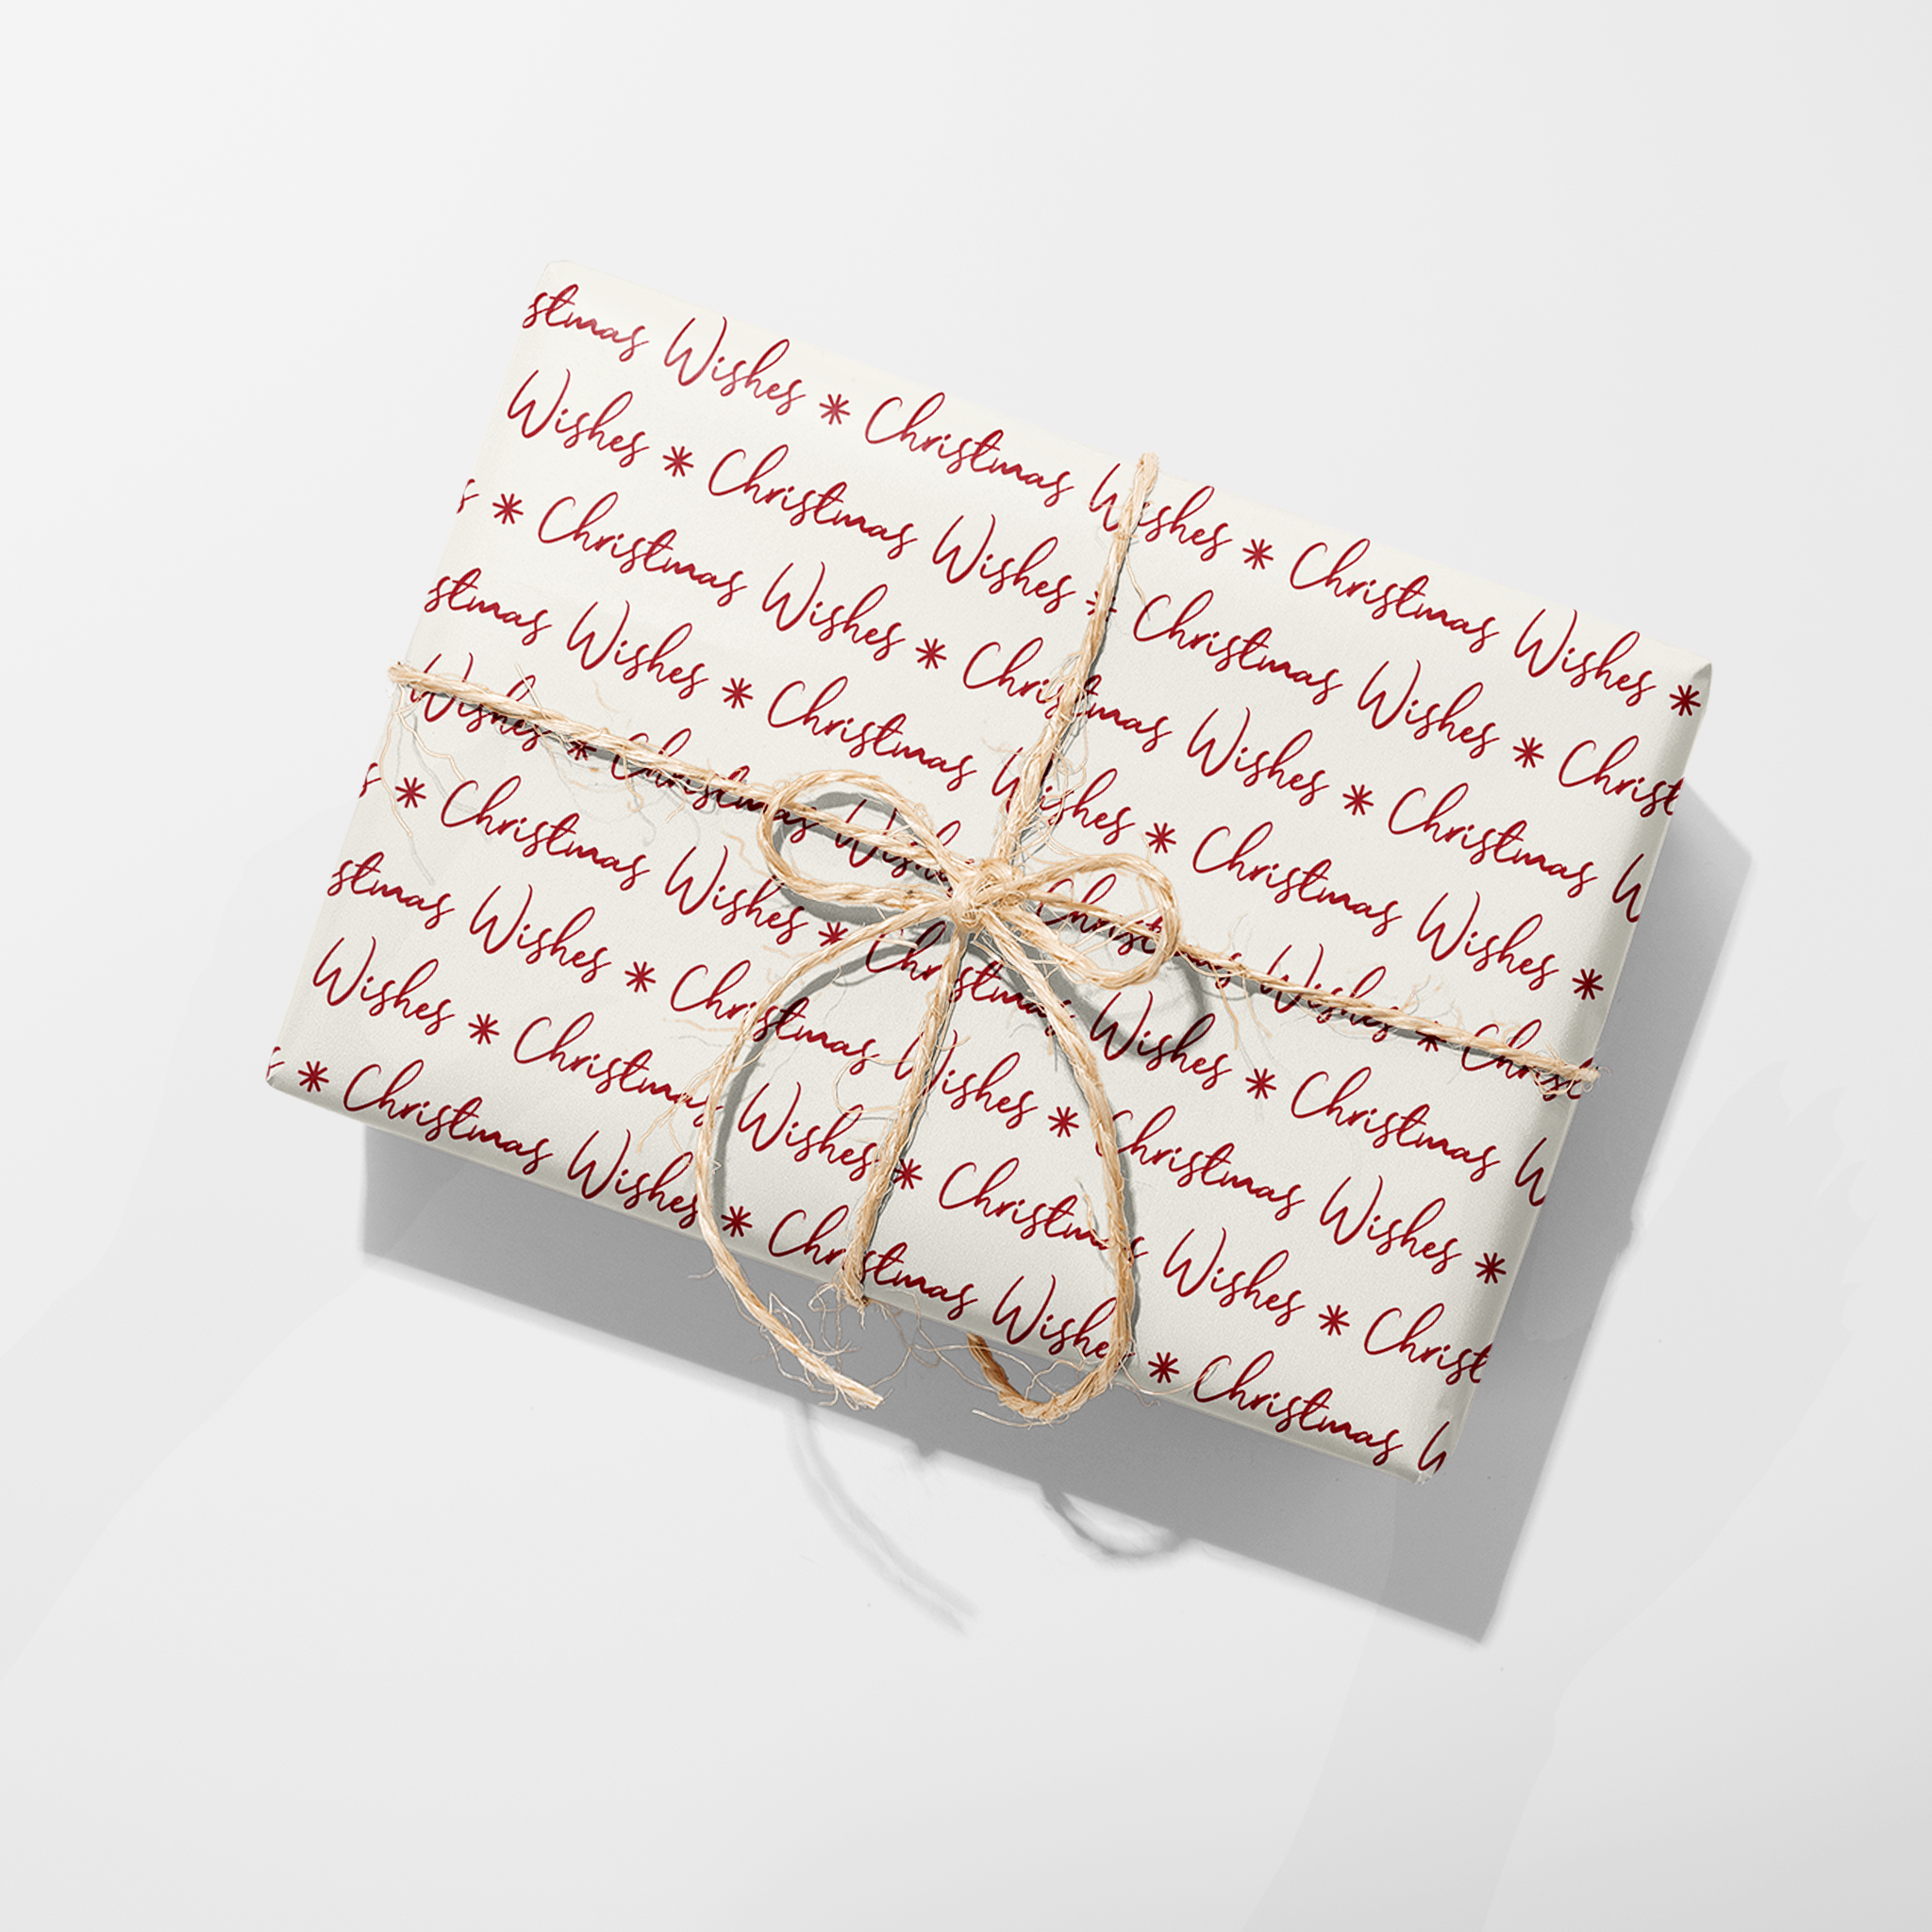 stmas Wishes * Christmas Wishes * Christmas Wishes *
Wishes * Christmas Wishes * Christmas Wishes * Christ
s * Christmas Wishes * Christmas Wishes * Christmas W
stmas Wishes * Christmas Wishes * Christmas Wishes *
Wishes * Christmas Wishes Christmas Wishes * Christ
s * Christmas Wishes * Christmas Wishes * Christmas W
stmas Wishes * Christmas Wishes * Christmas Wishes *
Wishes * Christmas Wishes * Christmas Wishes * Christ
s * Christmas Wishes * Christmas Wishes * Christmas W